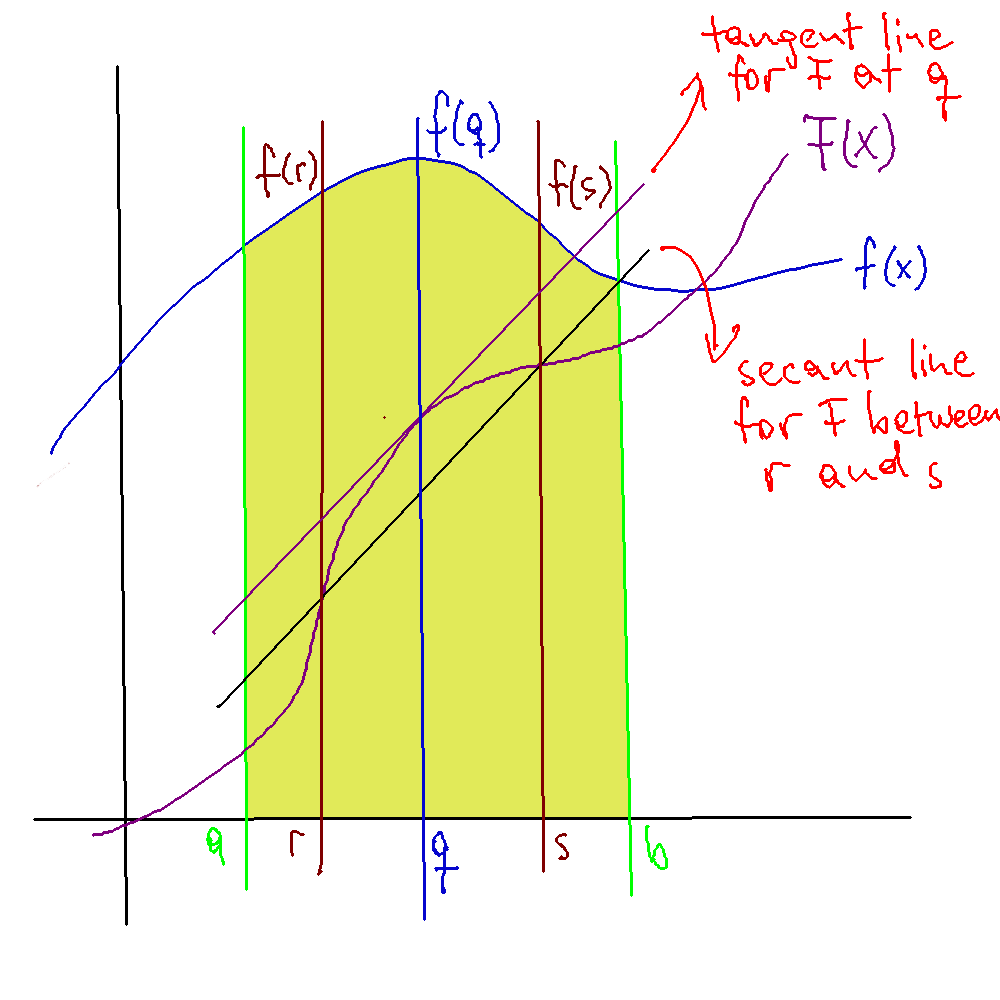 tangent line
for F at q
F(x)
f(q)
f(r)
f(s)
f(x)
secant line
for F between
r and s
a
r
q
s
b